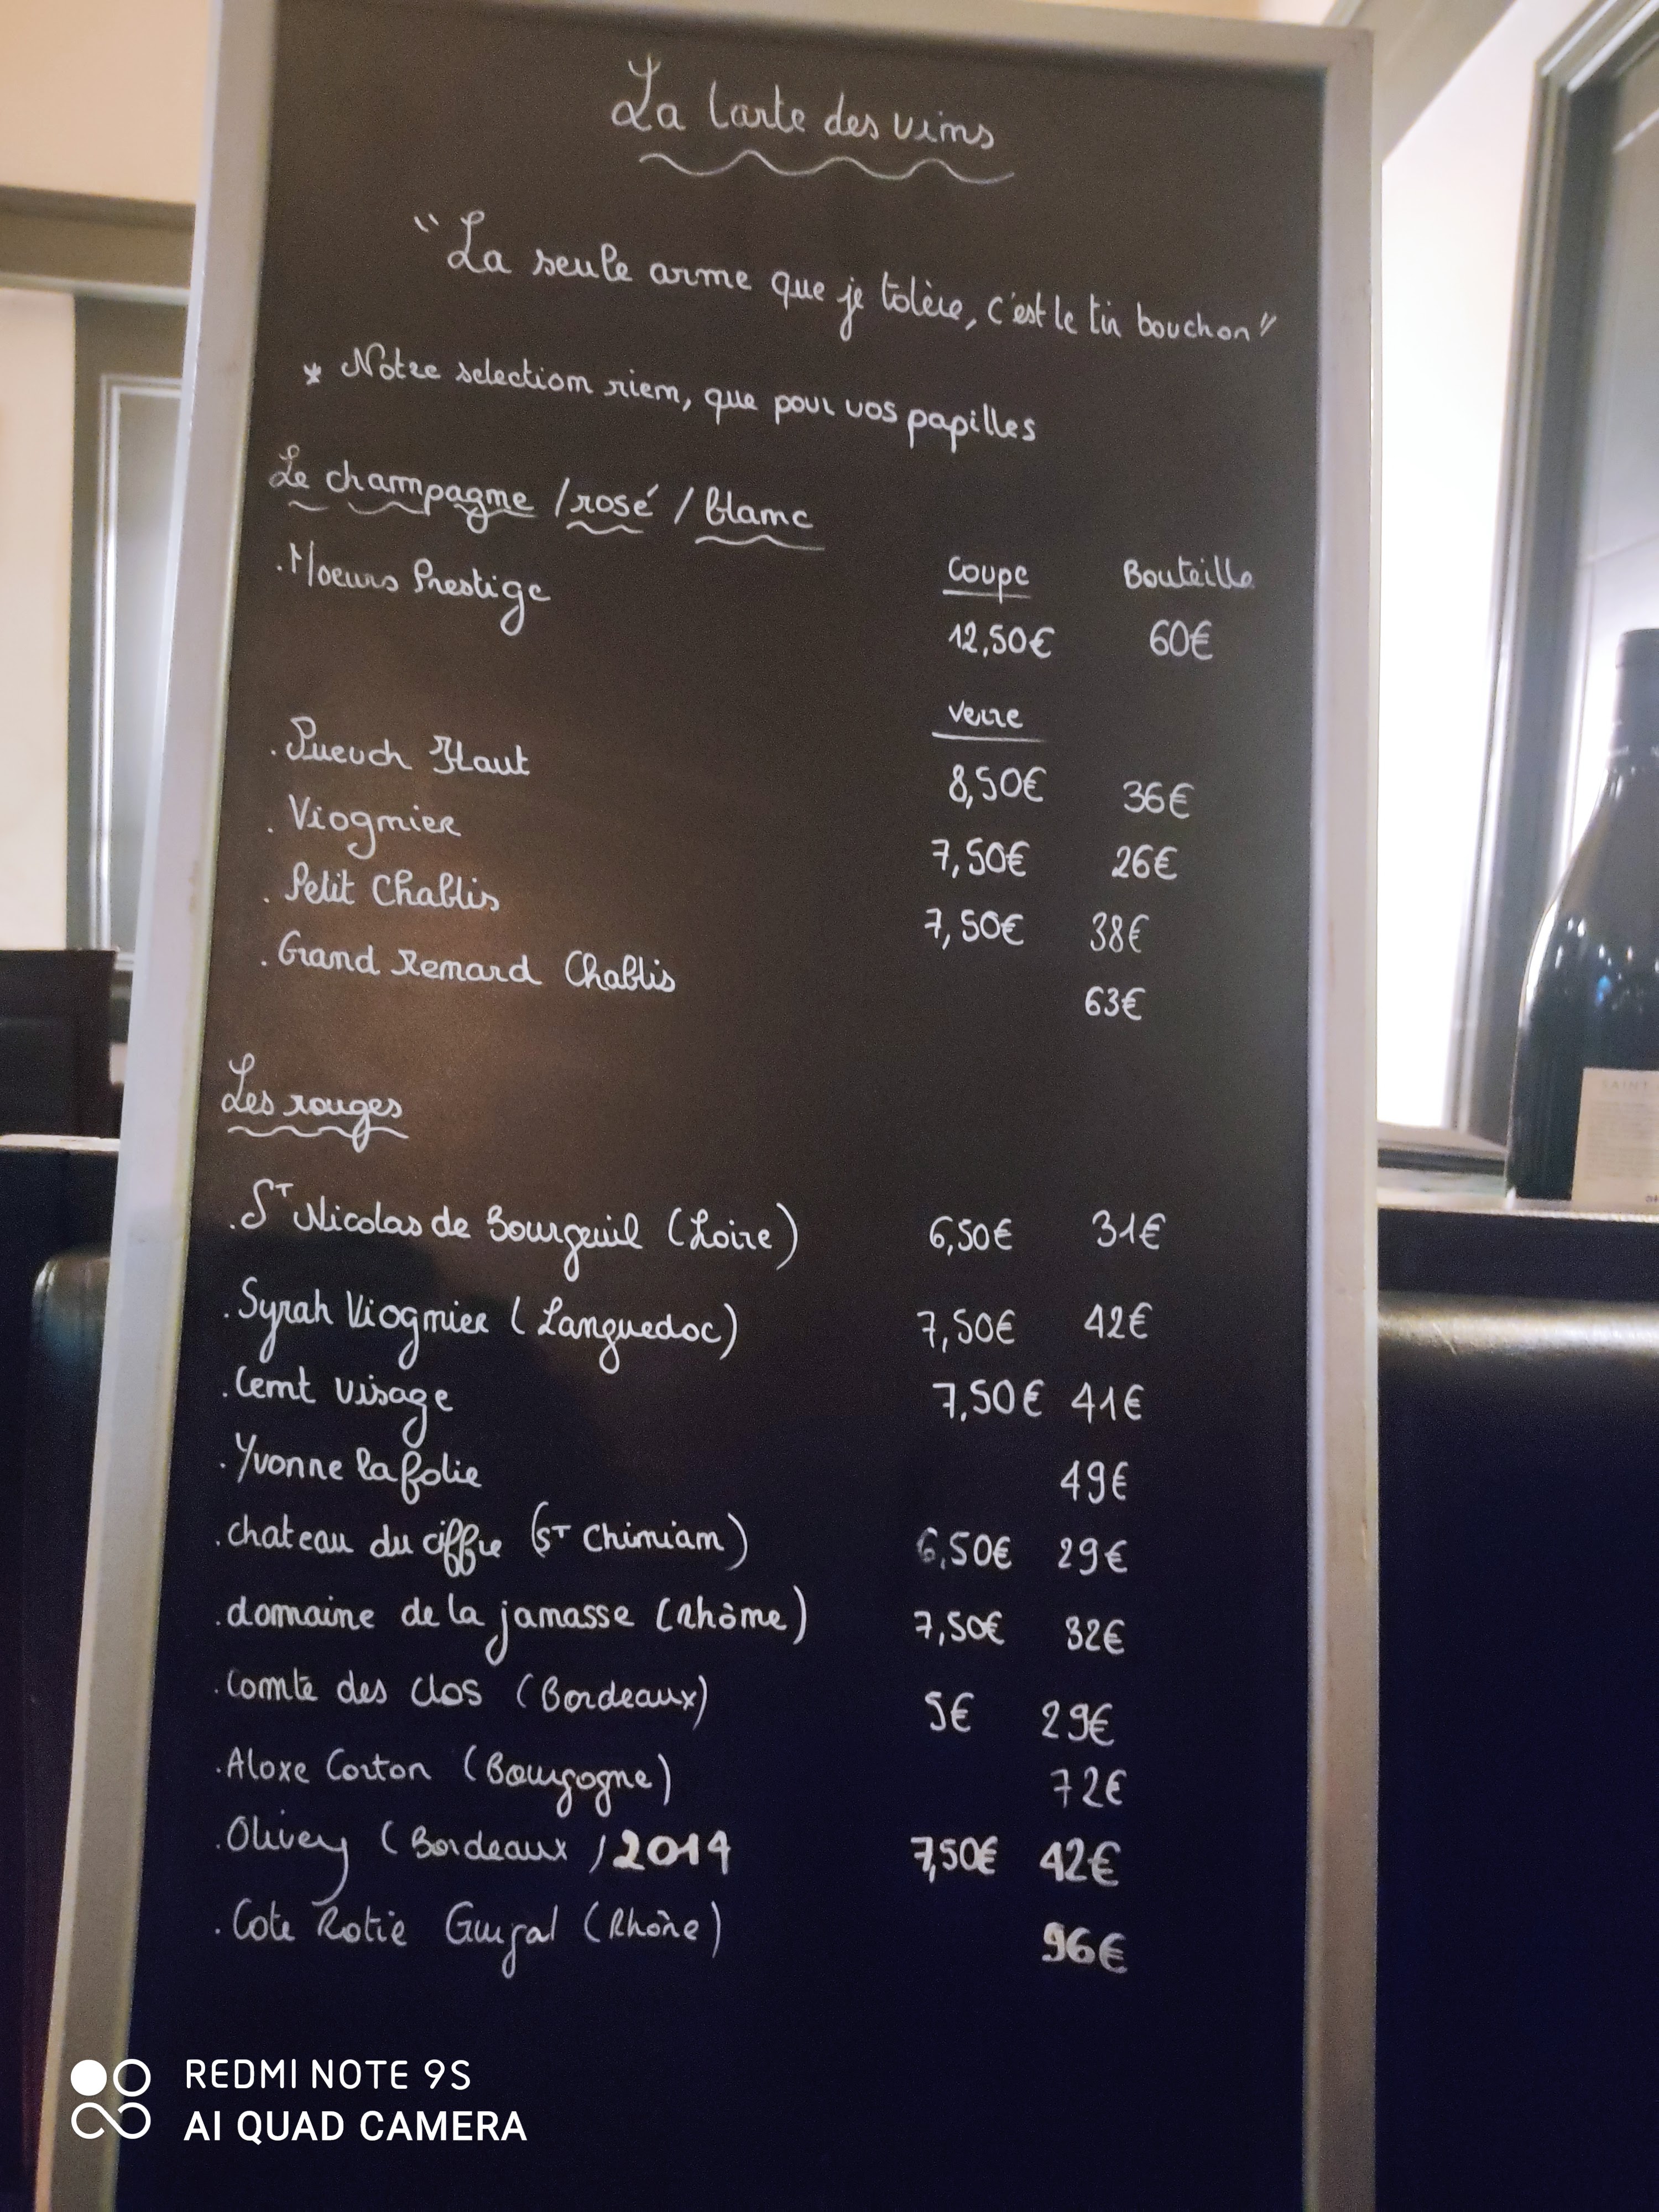 La Carte des vins
"La seule arme que je tolère, c'est le tir bouchon"
* Notre selection rien, que pour vos papilles
Le champagne / rosé / blanc
Coupe Bouteille
. Moeurs Prestige 12,50€ 60€
Verre
. Pueuch Haut 8,50€ 36€
. Viognier 7,50€ 26€
. Petit Chablis 7,50€ 38€
. Grand Renard Chablis 63€
Les rouges
. ST Nicolas de Bourgeuil (Loire) 6,50€ 31€
. Syrah Viognier (Languedoc) 7,50€ 42€
. Cent visage 7,50€ 41€
. Yvonne la folie 49€
. chateau du ciffre (ST Chinian) 6,50€ 29€
. domaine de la janasse (Rhône) 7,50€ 32€
. Comte des clos (Bordeaux) 5€ 29€
. Aloxe Corton (Bourgogne) 72€
. Olivey (Bordeaux) 2014 7,50€ 42€
. Cote Rotie Guigal (Rhône) 96€
SAINT
REDMI NOTE 9S
AI QUAD CAMERA